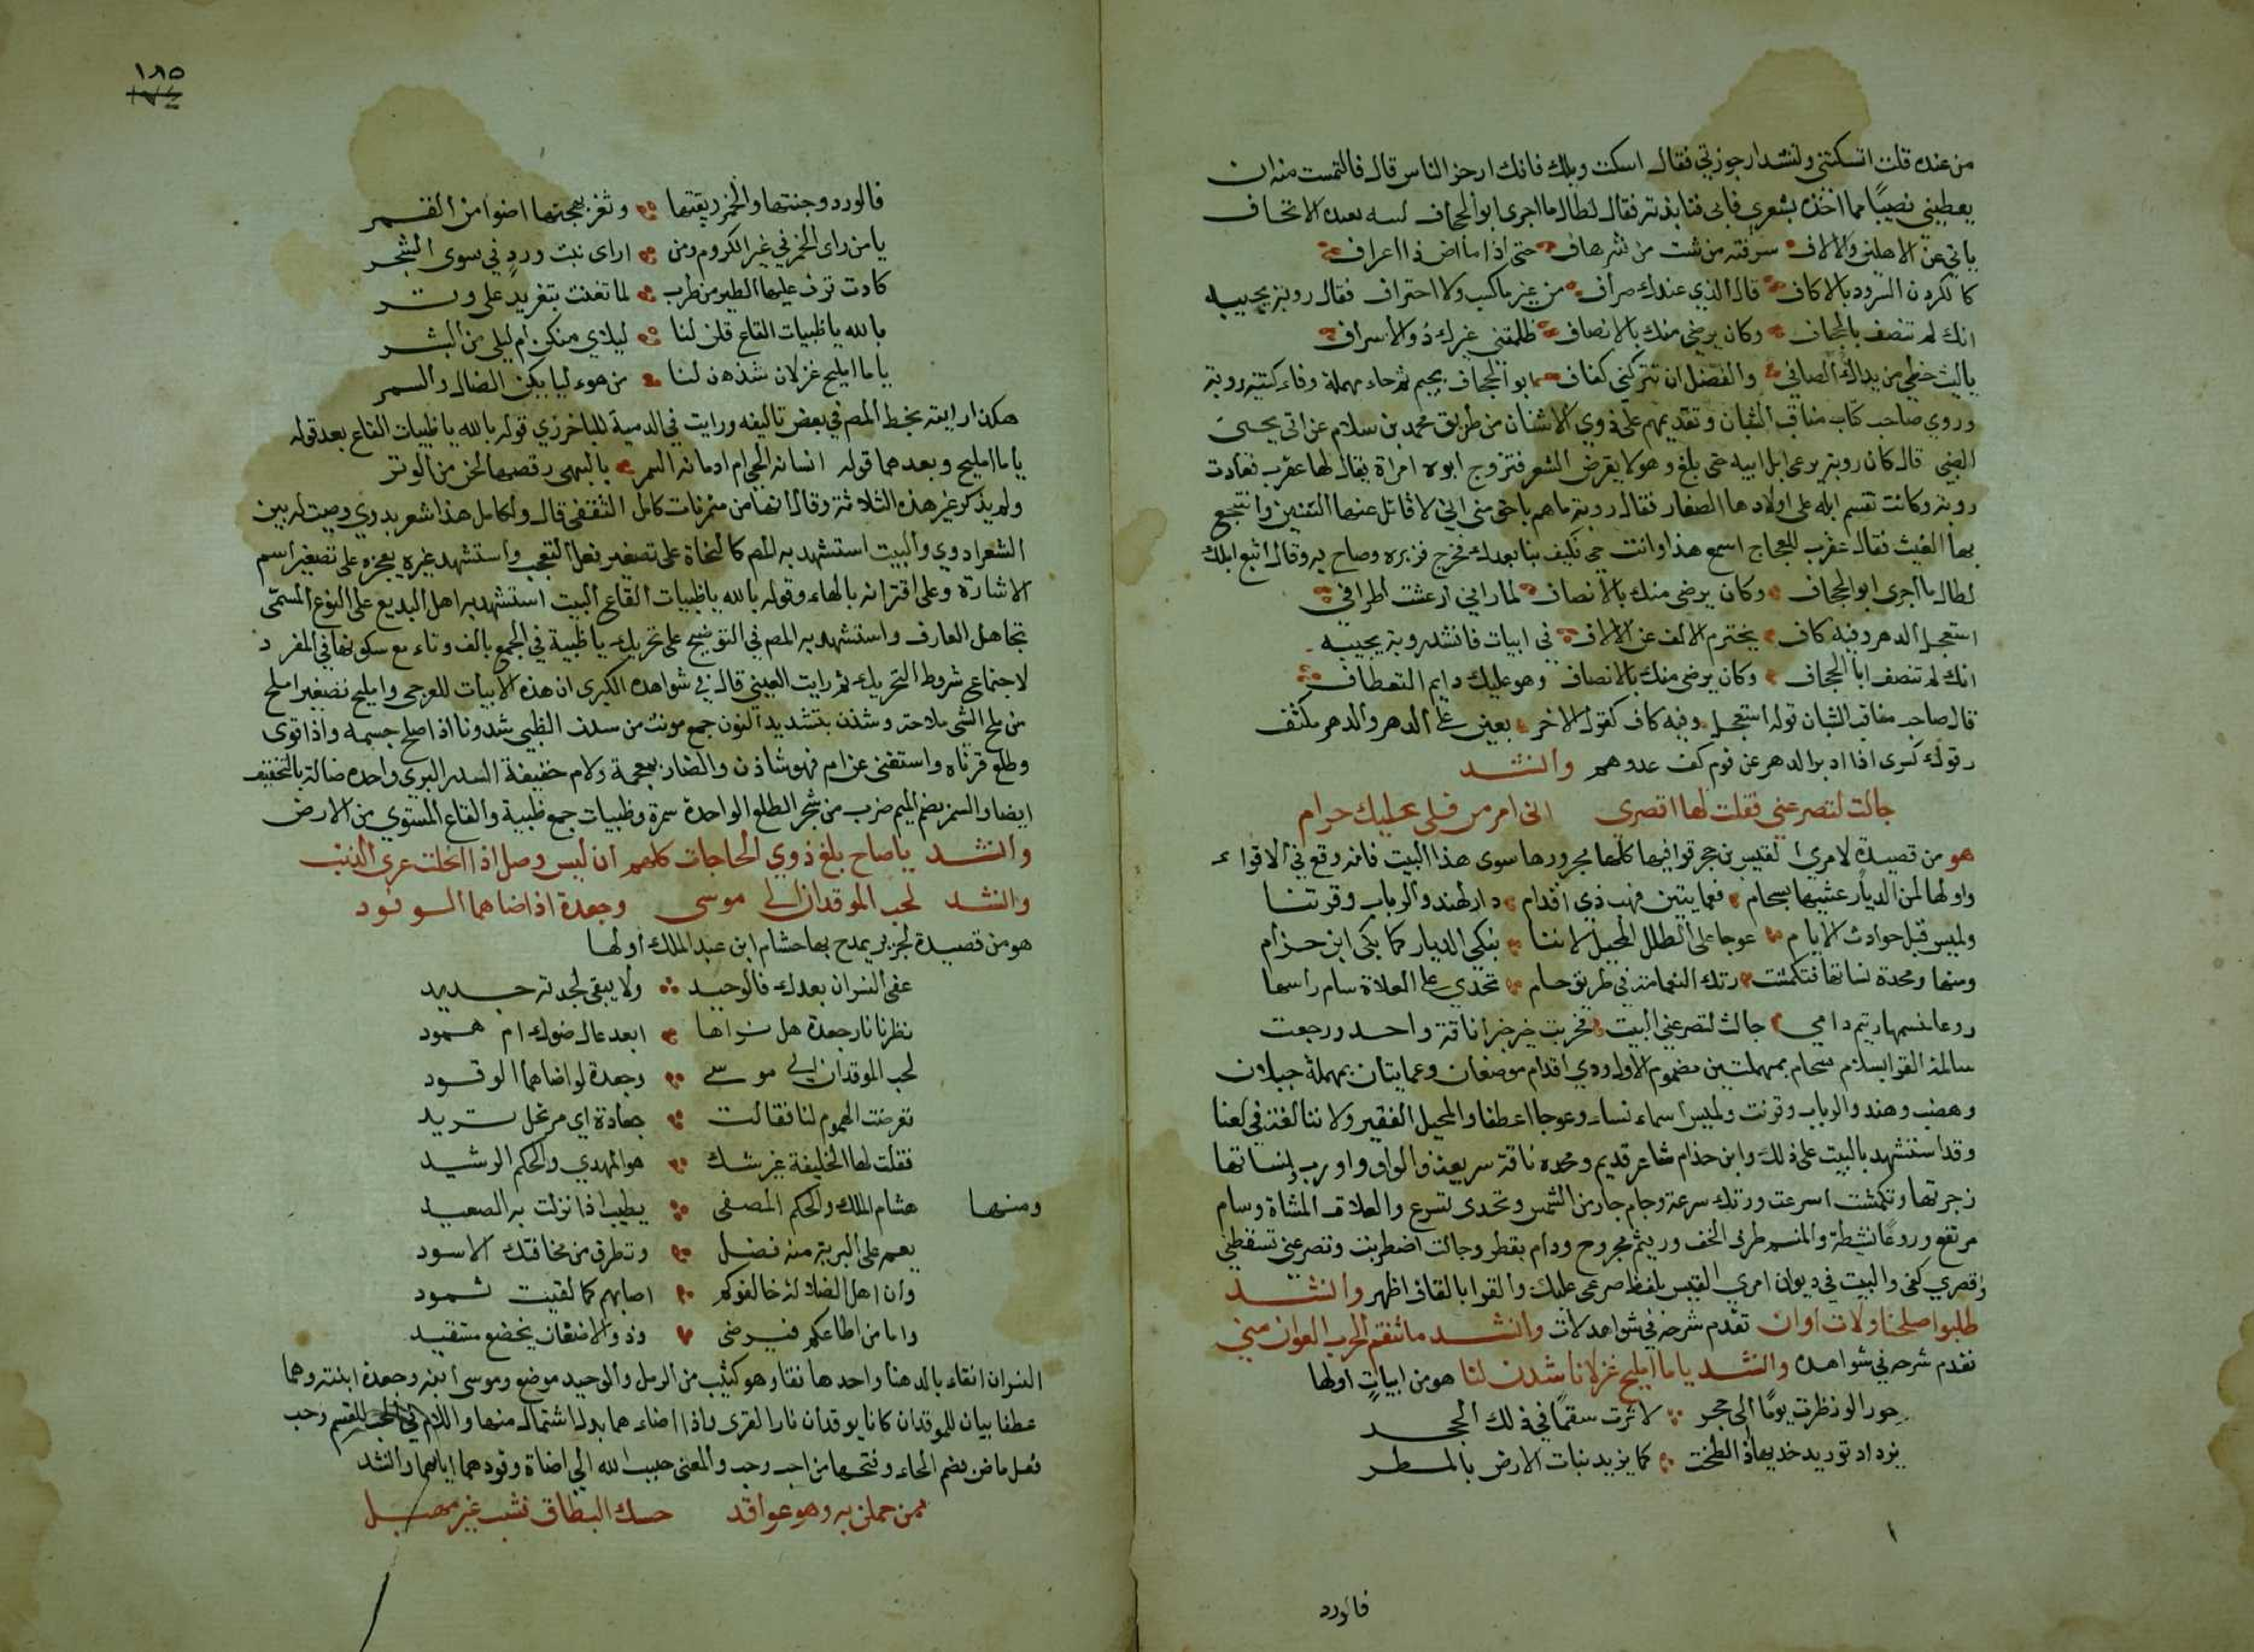 من عنده قلت اتسكتني وتنشد ارجوزتي فقال اسكت ويلك فانك ارجز الناس قال فالتمست منه ان
يعطيني نصيبًا مما اخذه بشعري فابى فنابذته فقال لطال ما اجرى ابو الجحاف لسه بعيده الاتحاف
ياتي عن الاهلين والالاف سرفته من شئت من سرهاف حتى اذا ما اض ذا اعراف
كالكردن المشدود بالاكاف قال الذي عندك صراف من غير ما كسب ولا احتراف فقال روبة يجيبه
انك لم تنصف ابا الجحاف وكان يرضى منك بالانصاف ظلمتني غرك ذو الاسراف
ياليت حظي من يداك الصافي والفضل ان تتركني كفاف ابو الجحاف بجيم ثم حاء مهملة وفاء كنيته روبة
وروي صاحب كتاب مناقب الشبان وتقديمهم على ذوي الاسنان من طريق محمد بن سلام عن ابي يحيى
الضبي قال كان روبة يرعى ابل ابيه حتى بلغ وهو لا يقرض الشعر فتزوج ابوه امراة يقال لها عقرب فعادت
روبة وكانت تقسم ابله على اولادها الصغار فقال روبة ما هم باحق مني اني لاقاتل عنها السنين وانتجع
بها الغيث فقال عقرب للعجاج اسمع هذا وانت حي فكيف بنا بعدك فخرج فزبره وصاح به وقال اتبع ابلك
لطال ما اجرى ابو الجحاف وكان يرضى منك بالانصاف لما راني ارعشت اطرافي
استعجل الدهر وفيه كاف يخترم الالف عن الالاف في ابيات فانشد روبة يجيبه
انك لم تنصف ابا الجحاف وكان يرضى منك بالانصاف وهو عليك دايم التعطاف
قال صاحب مناقب الشبان قوله استعجل وفيه كاف كقول الاخر بعين على الدهر والدهر مكتف
وقولك كسرى اذا ادبر الدهر عن قوم كفى عدوهم وانشد
جالت لتصرعني فقلت لها اقصرى اني امرء صرعي عليك حرام
هو من قصيدة لامرئ القيس بن حجر قوافيها كلها مجرورها سوى هذا البيت فانه وقع في الاقواء
واولها لمن الديار غشيتها بسحام فعمايتين فهضب ذي اقدام دار لهند والرباب وقرتنا
ولميس قبل حوادث الايام عوجا على الطلل المحيل لاننا نبكي الديار كما بكى ابن حزام
ومنها ومجدة نساتها فتكمشت رتك النعامة في طريق حام تخدي على العلاة سام راسها
روعا منسمها رثيم دامي جالت لتصرعني البيت فخريت خير جزا ناقة واحد ورجعت
سالمة القرا بسلام سحام بمهملتين مضموم الاول وذي اقدام موضعان وعمايتان بمهملة جبلان
وهضب وهند والرباب وقرتنا ولميس اسماء نساء وعوجا اعطفا والمحيل الفقير ولاننا لغة في لعلنا
وقد استشهد بالبيت على ذلك وابن حذام شاعر قديم ومجده ناقة سريعة والواو واو رب ونساتها
زجرتها وتكمشت اسرعت ورتك سرعة وحام حار من الشمس وتخدى تسرع والعلات المشاة وسام
مرتفع وروعا نشطة والمنسم طرف الخف ورثيم مجروح ودام يقطر وجالت اضطربت وتصرعني تسقطني
واقصري كفى والبيت في ديوان امرئ القيس بلفظ صرعى عليك والقوا بالقاف اظهر وانشد
طلبوا صلحنا ولات اوان تقدم شرحه في شواهد لات وانشد ما تنقم الحرب العوان مني
تقدم شرحه في شواهده وانشد ياما اميلح غزلانا شدن لنا هو من ابيات اولها
حور الو نظرت يومًا الى حجر لاثرت سقمًا في ذلك الحجر
يزداد توريد خديها اذا لطخت كما يزيد نبات الارض بالمطر
فالورد
١٨٥
١٧٤
فالورد وجنتها والخمر ريقتها وثغر بهجتها اضوا من القمر
يا من راى الخمر في غير الكروم ومن اراى نبت وردٍ في سوى الشجر
كادت ترف عليها الطير من طرب لما تغنت بتغريدٍ على وتر
بالله يا ظبيات القاع قلن لنا ليلاي منكن ام ليلى من البشر
ياما اميلح غزلان شدن لنا من هوء ليا يكن الضال والسمر
هكذا رايته بخط المص في بعض تاليفه ورايت في الدمية للباخرزي قوله بالله يا ظبيات القاع بعد قوله
ياما اميلح وبعدهما قوله انسانه الحي ام ادمانة السمر بالنهي رقصها لحن من الوتر
ولم يذكر غير هذه الثلاثة وقال انها من متفرقات كامل الثقفي قال ولكامل هذا شعر بدوي وصيت له بين
الشعر ادوي والبيت استشهد به المص كالنحاة على تصغير فعل التعجب واستشهد غيره بعجزه على تصغير اسم
الاشارة وعلى اقترانه بالهاء وقوله بالله يا ظبيات القاع البيت استشهد به اهل البديع على النوع المسمى
تجاهل العارف واستشهد به المص في التوضيح على تحريك يا ظبية في الجمع بالف وتاء مع سكونها في المفرد
لاجتماع شروط التحريك ثم رايت العيني قال في شواهده الكبرى ان هذه الابيات للعرجي واميلح تصغير املح
من ملح الشي ملاحة وشدن بتشديد النون جمع مونث من شدن الظبي شدونا اذا صلح جسمه واذا قوى
وطلع قرناه واستغنى عن ام فهو شاذن والضار بمعجمة ولام خفيفة السدر البري واحده ضالة بالتخفيف
ايضا والسمر بضم الميم ضرب من شجر الطلع الواحدة سمرة وظبيات جمع ظبية والقاع المستوي من الارض
وانشد يا صاح بلغ ذوي الحاجات كلهم ان ليس وصل اذا انحلت عرى الذنب
وانشد لحب الموقدان الى موسى وجعدة اذ اضاهما الوقود
هو من قصيدة لجرير يمدح بها هشام ابن عبد الملك اولها
عفى النسران بعدك فالوحيد ولا يبقى لجدته جديد
نظرنا نار جعدة هل نراها ابعد عال ضوك ام همود
لحب الموقدان الى موسى وجعدة لو اضاهما الوقود
تعرضت الهموم لنا فقالت جعادة اي مرتحل تريد
فقلت لها الخليفة غير شك هو المهدي والحكم الرشيد
ومنها هشام الملك والحكم المصفى يطيب اذا نزلت به الصعيد
يعم على البرية منه فضل وتطرق من مخافتك الاسود
وان اهل الضلالة خالفوكم اصابهم كما لقيت ثمود
واما من اطاعكم فيرضى وذو الاضغان يخضع مستقيد
النسران انقاء بالدهنا واحدها نقا وهو كثيب من الرمل والوحيد موضع وموسى ابنه وجعدة ابنته وهما
عطفا بيان للموقدان كانا يوقدان نار القرى واذا اضاء هما بدل اشتمال منها واللام في لحب للقسم وحب
فعل ماض بضم الحاء وفتحها من احب وحب والمعنى حبب الله الي اضاة وقودهما اياهما وانشد
ممن حملن به وهن عواقد حبك النطاق فشب غير مهبل